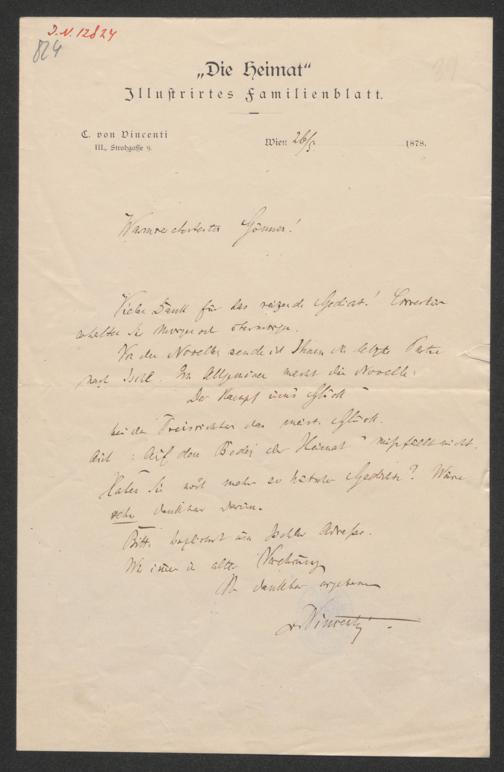 J.N. 12824
824
„Die Heimat“
Illustrirtes Familienblatt.
C. von Vincenti
III., Strohgasse 9.
Wien 26/5 1878.
Warmverehrtester Gönner!
Vielen Dank für das reizende Gedicht! Correctur
erhalten Sie morgen od. übermorgen.
Von der Novelle sende ich Ihnen die letzte
nach Ischl. Im Allgemeinen macht die Novelle:
„Der Kampf ums Glück“
bei den Preisrichtern das meiste Glück.
Auch: „Auf dem Boden der Heimat“ mißfällt nicht.
Haben Sie noch mehr so hübsche Gedichte? Wäre
sehr dankbar darum.
Bitte um Ischler Adresse.
Wie immer in alter Verehrung
Ihr dankbar ergebener
vVincenti